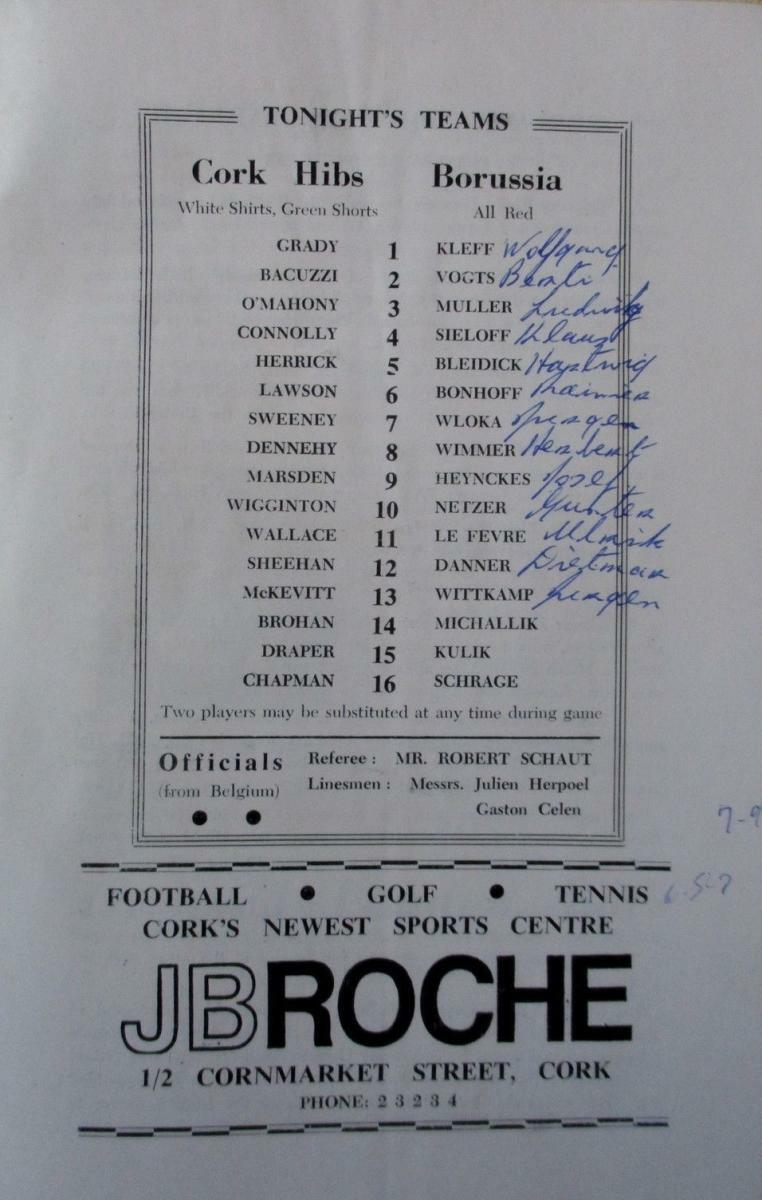 TONIGHT'S TEAMS
Cork Hibs Borussia
White Shirts, Green Shorts All Red
GRADY 1 KLEFF Wolfgang
BACUZZI 2 VOGTS Berti
O'MAHONY 3 MULLER Ludwig
CONNOLLY 4 SIELOFF Klaus
HERRICK 5 BLEIDICK Hartwig
LAWSON 6 BONHOFF Rainer
SWEENEY 7 WLOKA Jurgen
DENNEHY 8 WIMMER Herbert
MARSDEN 9 HEYNCKES Josef
WIGGINTON 10 NETZER Gunter
WALLACE 11 LE FEVRE Ulrik
SHEEHAN 12 DANNER Dietmar
McKEVITT 13 WITTKAMP Jurgen
BROHAN 14 MICHALLIK
DRAPER 15 KULIK
CHAPMAN 16 SCHRAGE
Two players may be substituted at any time during game
Officials Referee : MR. ROBERT SCHAUT
(from Belgium) Linesmen : Messrs. Julien Herpoel
Gaston Celen
7-9
FOOTBALL ● GOLF ● TENNIS
CORK'S NEWEST SPORTS CENTRE
JBROCHE
1/2 CORNMARKET STREET, CORK
PHONE: 2 3 2 3 4